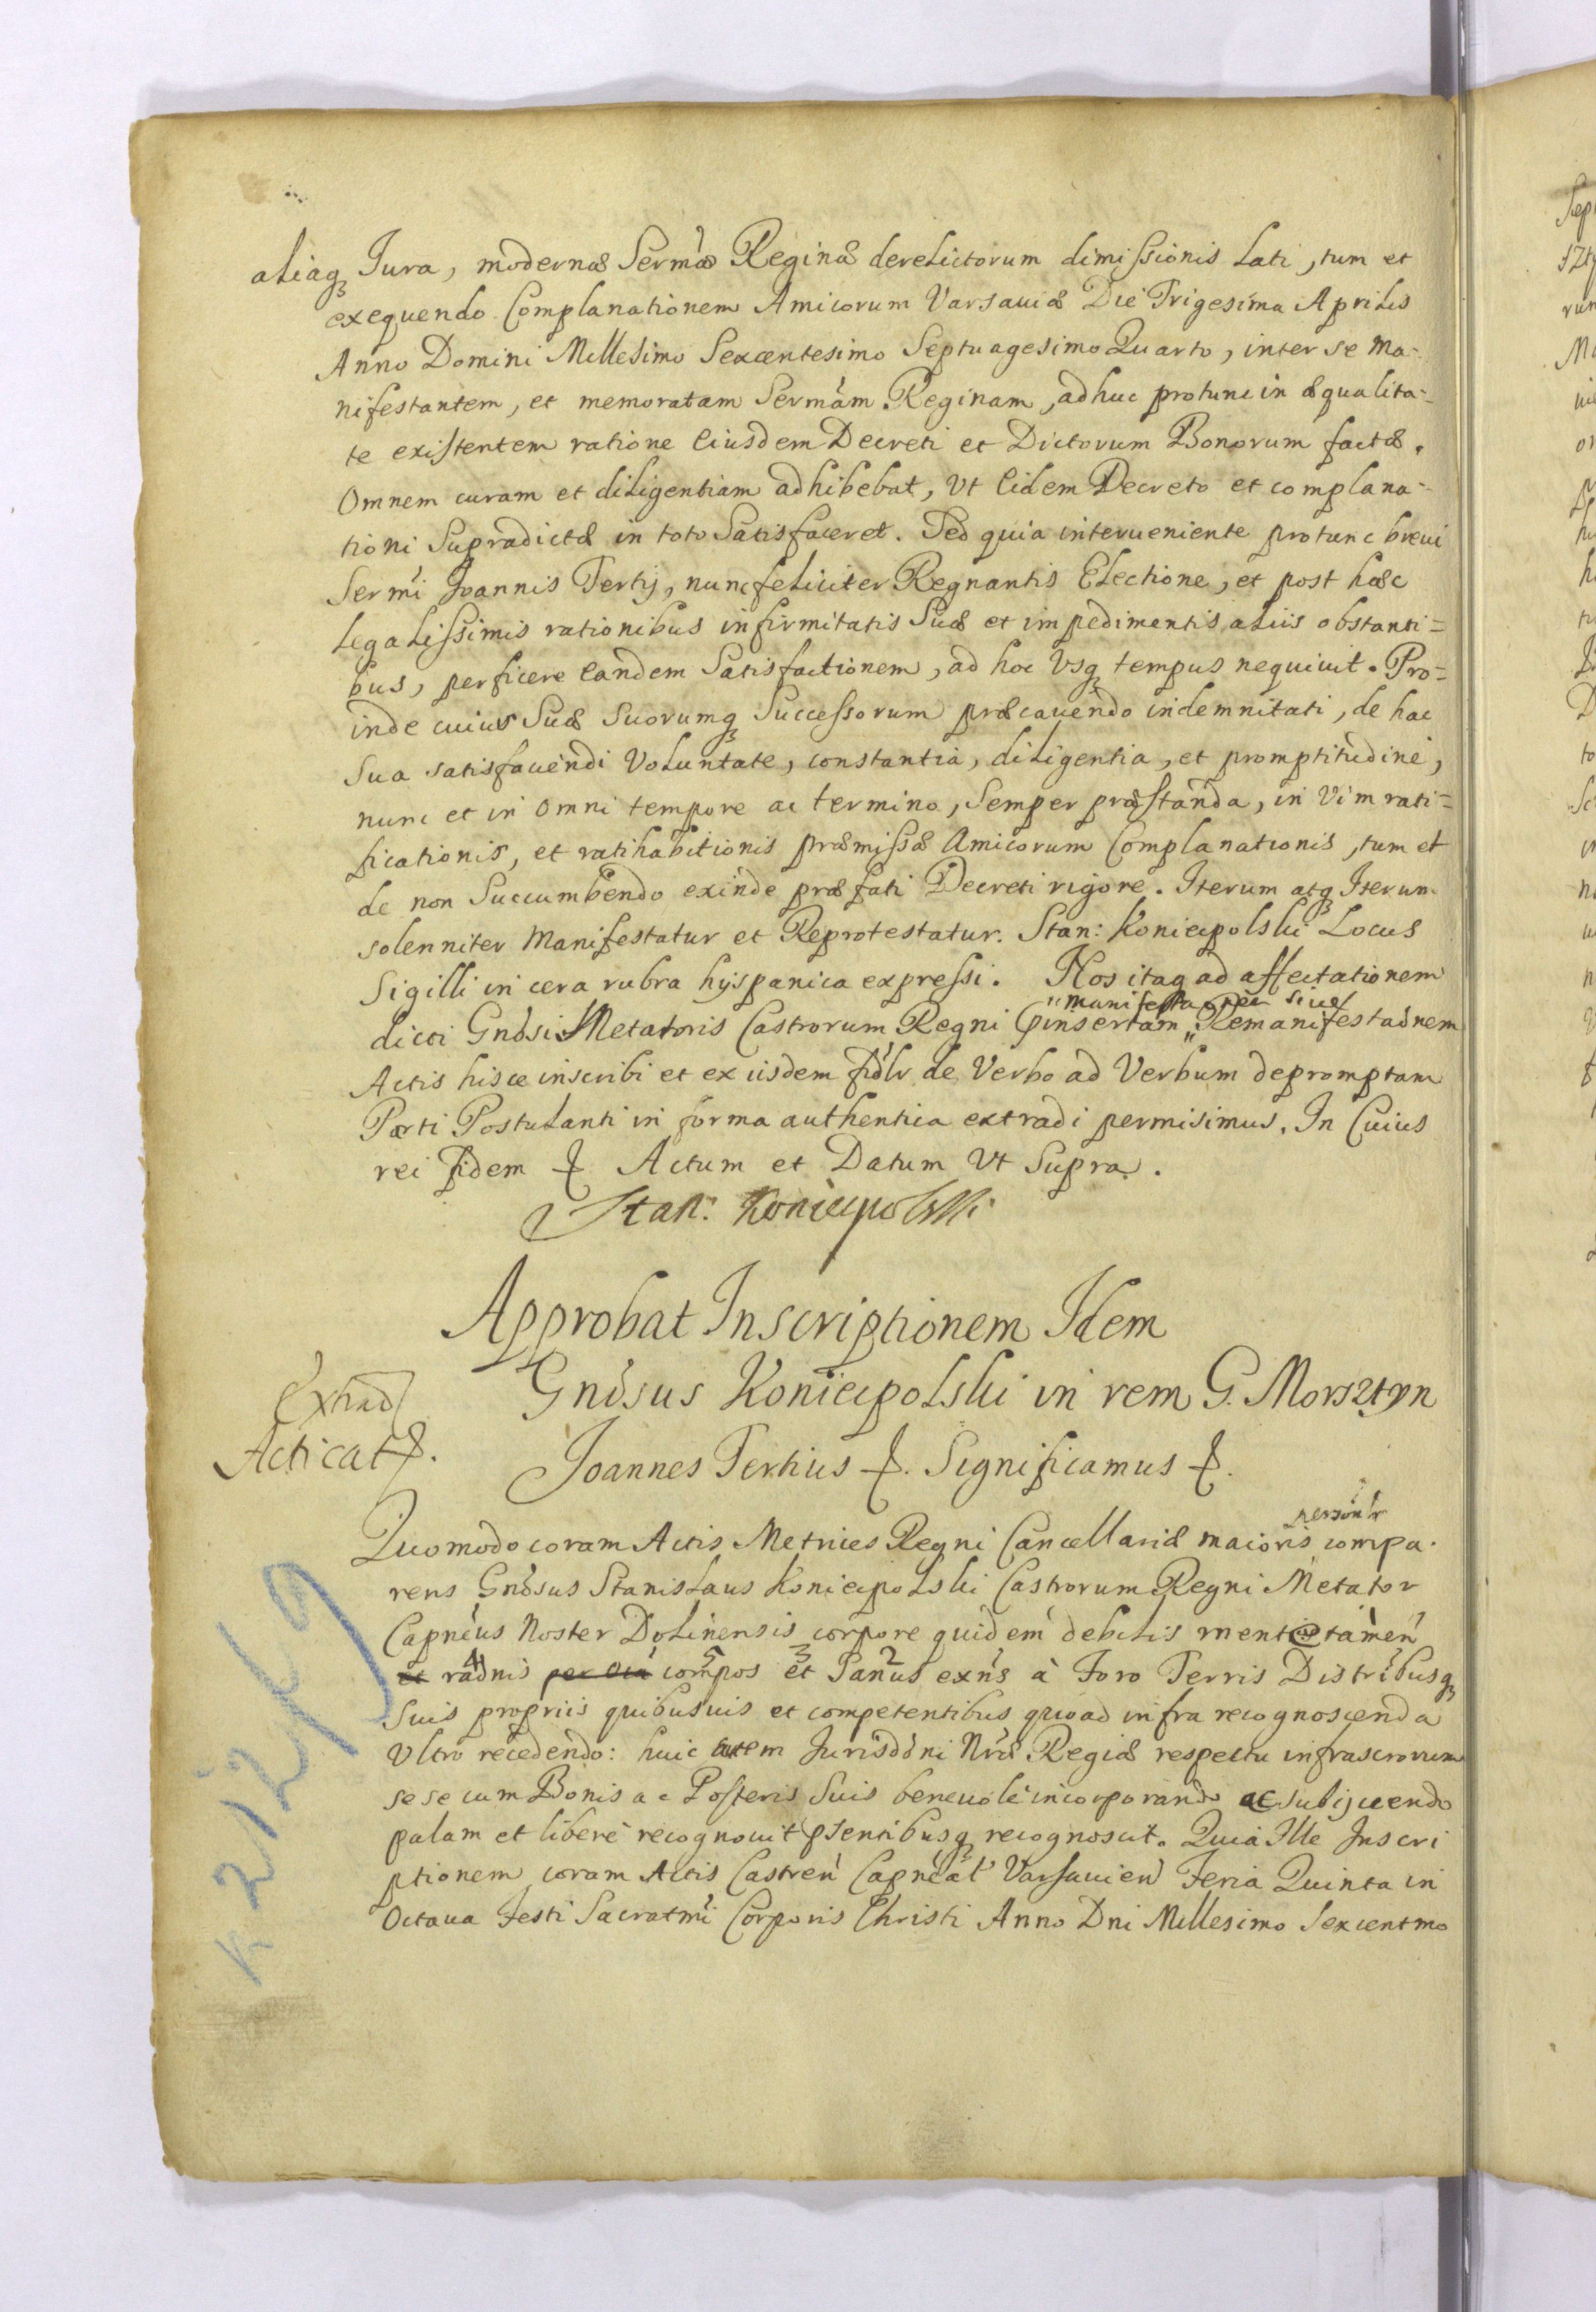 aliaq₃ Jura, modernæ Serm̃æ Reginæ derelictorum dimissionis Lati, tum et
exequendo Complanationem Amicorum Varsauiæ Die Trigesima Aprilis
Anno Domini Millesimo Sexcentesimo Septuagesimo Quarto, inter se Ma-
nifestantem, et memoratam Serm̃am Reginam, adhuc protunc in æqualita-
te existentem ratione Eiusdem Decreti et Dictorum Bonorum factæ.
Omnem curam et diligentiam adhibebat, Vt Eidem Decreto et complana-
tioni Supradictæ in toto Satisfaceret. Sed quia interueniente protunc breui
Serm̃i Joannis Tertij, nunc feliciter Regnantis Electione, et post hæc
legalissimis rationibus infirmitatis Suæ et impedimentis aliis obstanti=
bus, perficere Eandem Satisfactionem, ad hoc Vsq₃ tempus nequiuit. Pro=
inde cuius Suæ Suorumq₃ Successorum præcauendo indemnitati, de hac
Sua satisfaciendi Voluntate, constantia, diligentia, et promptitudine,
nunc et in Omni tempore ac termino, Semper præstanda, in Vim rati=
ficationis, et ratihabitionis præmissæ Amicorum Complanationis, tum et
de non Succumbendo exinde præfati Decreti rigore. Iterum atq₃ Iterum
solenniter Manifestatur et Reprotestatur. Stan: Koniecpolski Locus
Sigilli in cera rubra hyspanica expressi. Nos itaq ad affectationem
" manifestaoñem siue
dicti Gñosi Metatoris Castrorum Regni Pinsertam " Remanifestaõnem
Actis hisce inscribi et ex iisdem fidlr de Verbo ad Verbum depromptam
Parti Postulanti in forma authentica extradi permisimus. In Cuius
rei fidem ꝭ Actum et Datum Vt Supra.
Stan: Koniecpolski
Approbat Inscriptionem Idem
Gnõsus Koniecpolski in rem G. Morsztyn
Extrad
Acticat ꝭ.
Joannes Tertius ꝭ. Significamus ꝭ.
personlr
Quomodo coram Actis Metrices Regni Cancellariæ maioris compa-
rens Gnõsus Stanislaus Koniecpolski Castrorum Regni Metator
Capneus Noster Dolinensis corpore quidem debilis mente tamen
4 5 3 2
et raõnis per oia compos et Sanus exñs à Foro Terris Districtibusq₃
Suis propriis quibusuis et competentibus quoad infra recognoscenda
Vltro recedendo: huic autem Jurisdõni Nr̃æ Regiæ respectu infrascrorum
se se cum Bonis ac Posteris Suis beneuole incorporando ac subijciendo
palam et libere recognouit pñtentibusq₃ recognoscit. Quia Ille Inscri
ptionem coram Actis Castreñ Capneal Varsauieñ Feria Quinta in
Octaua Festi Sacratm̃i Corporis Christi Anno Dni Millesimo Sexcentmo